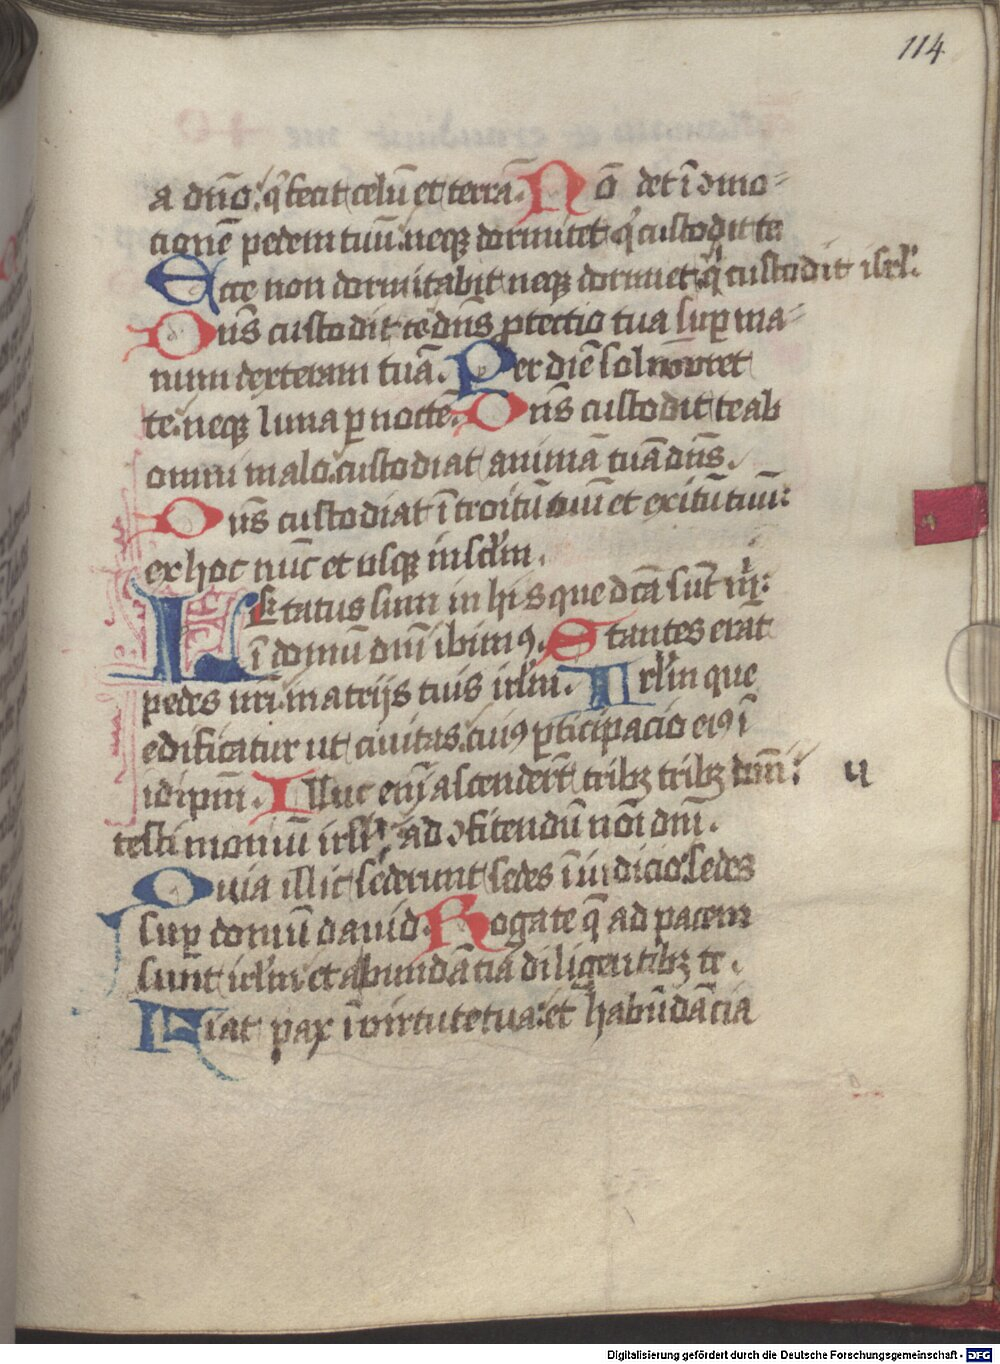 114
a dn̄o: q̄ fecit celū et terrā. Nō det ī ꝯmo⸗
tionē pedem tuū: neqꝫ dormitet q̇ custodit te
Ecce non dormitabit neqꝫ dormiet q̇ custodit isrl̓.
Dn̄s custodit te dn̄s ꝓtectio tua suꝑ ma⸗
num dexteram tuā. Per diē sol nō uret
te: neqꝫ luna ꝑ noctē. Dn̄s custodit te ab
omni malo: custodiat animā tuā dn̄s.
Dn̄s custodiat ītroitū tuū et exitū tuū:
ex hoc nūc et usqꝫ in sc̄lm.
Letatus sum in his que dcā sūt m̓:
ī domū dn̄i ibimꝰ. Stantes erāt
pedes nr̄i: in atrijs tuis irl̓m. Irl̓m que
edificatur ut ciuitas: cuiꝰ ꝑticipacio eiꝰ ī
idip̄m. Illuc em̄ ascenderūt tribꝫ tribꝫ dom̄i: u
testimoniū isrl̓ ad ꝯfitendū nōi dn̄i.
Quia illic sederunt sedes ī iudicio: sedes
suꝑ domū dauid. Rogate q̄ ad pacem
sunt irl̓m et abundācia diligentibꝫ te.
Fiat pax ī virtute tua: et habūdācia
Digitalisierung gefördert durch die Deutsche Forschungsgemeinschaft - DFG